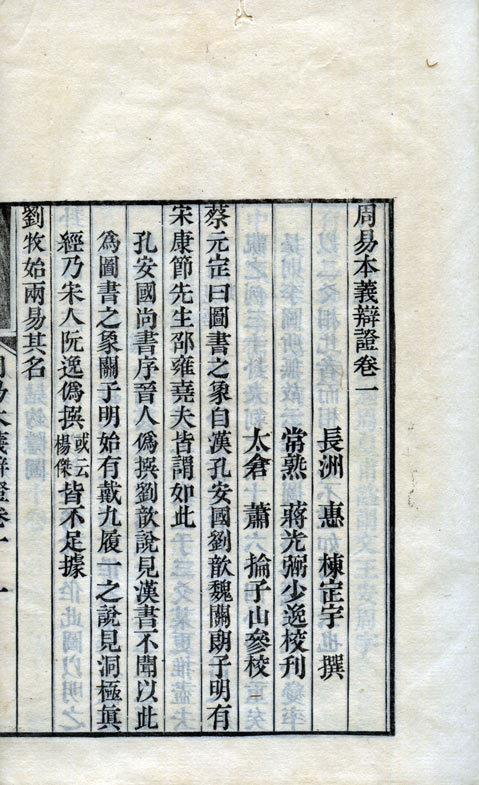 周易本義辯證卷一
長洲 惠 棟定宇 撰
常熟 蔣光弼少逸校刊
太倉 蕭 掄子山參校
蔡元定曰圖書之象自漢孔安國劉歆魏關朗子明有
宋康節先生邵雍堯夫皆謂如此
孔安國尚書序晉人僞撰劉歆說見漢書不聞以此
爲圖書之象關子明始有戴九履一之說見洞極眞
經乃宋人阮逸僞撰或云楊傑皆不足據
劉牧始兩易其名
周易本義辯證卷一 一